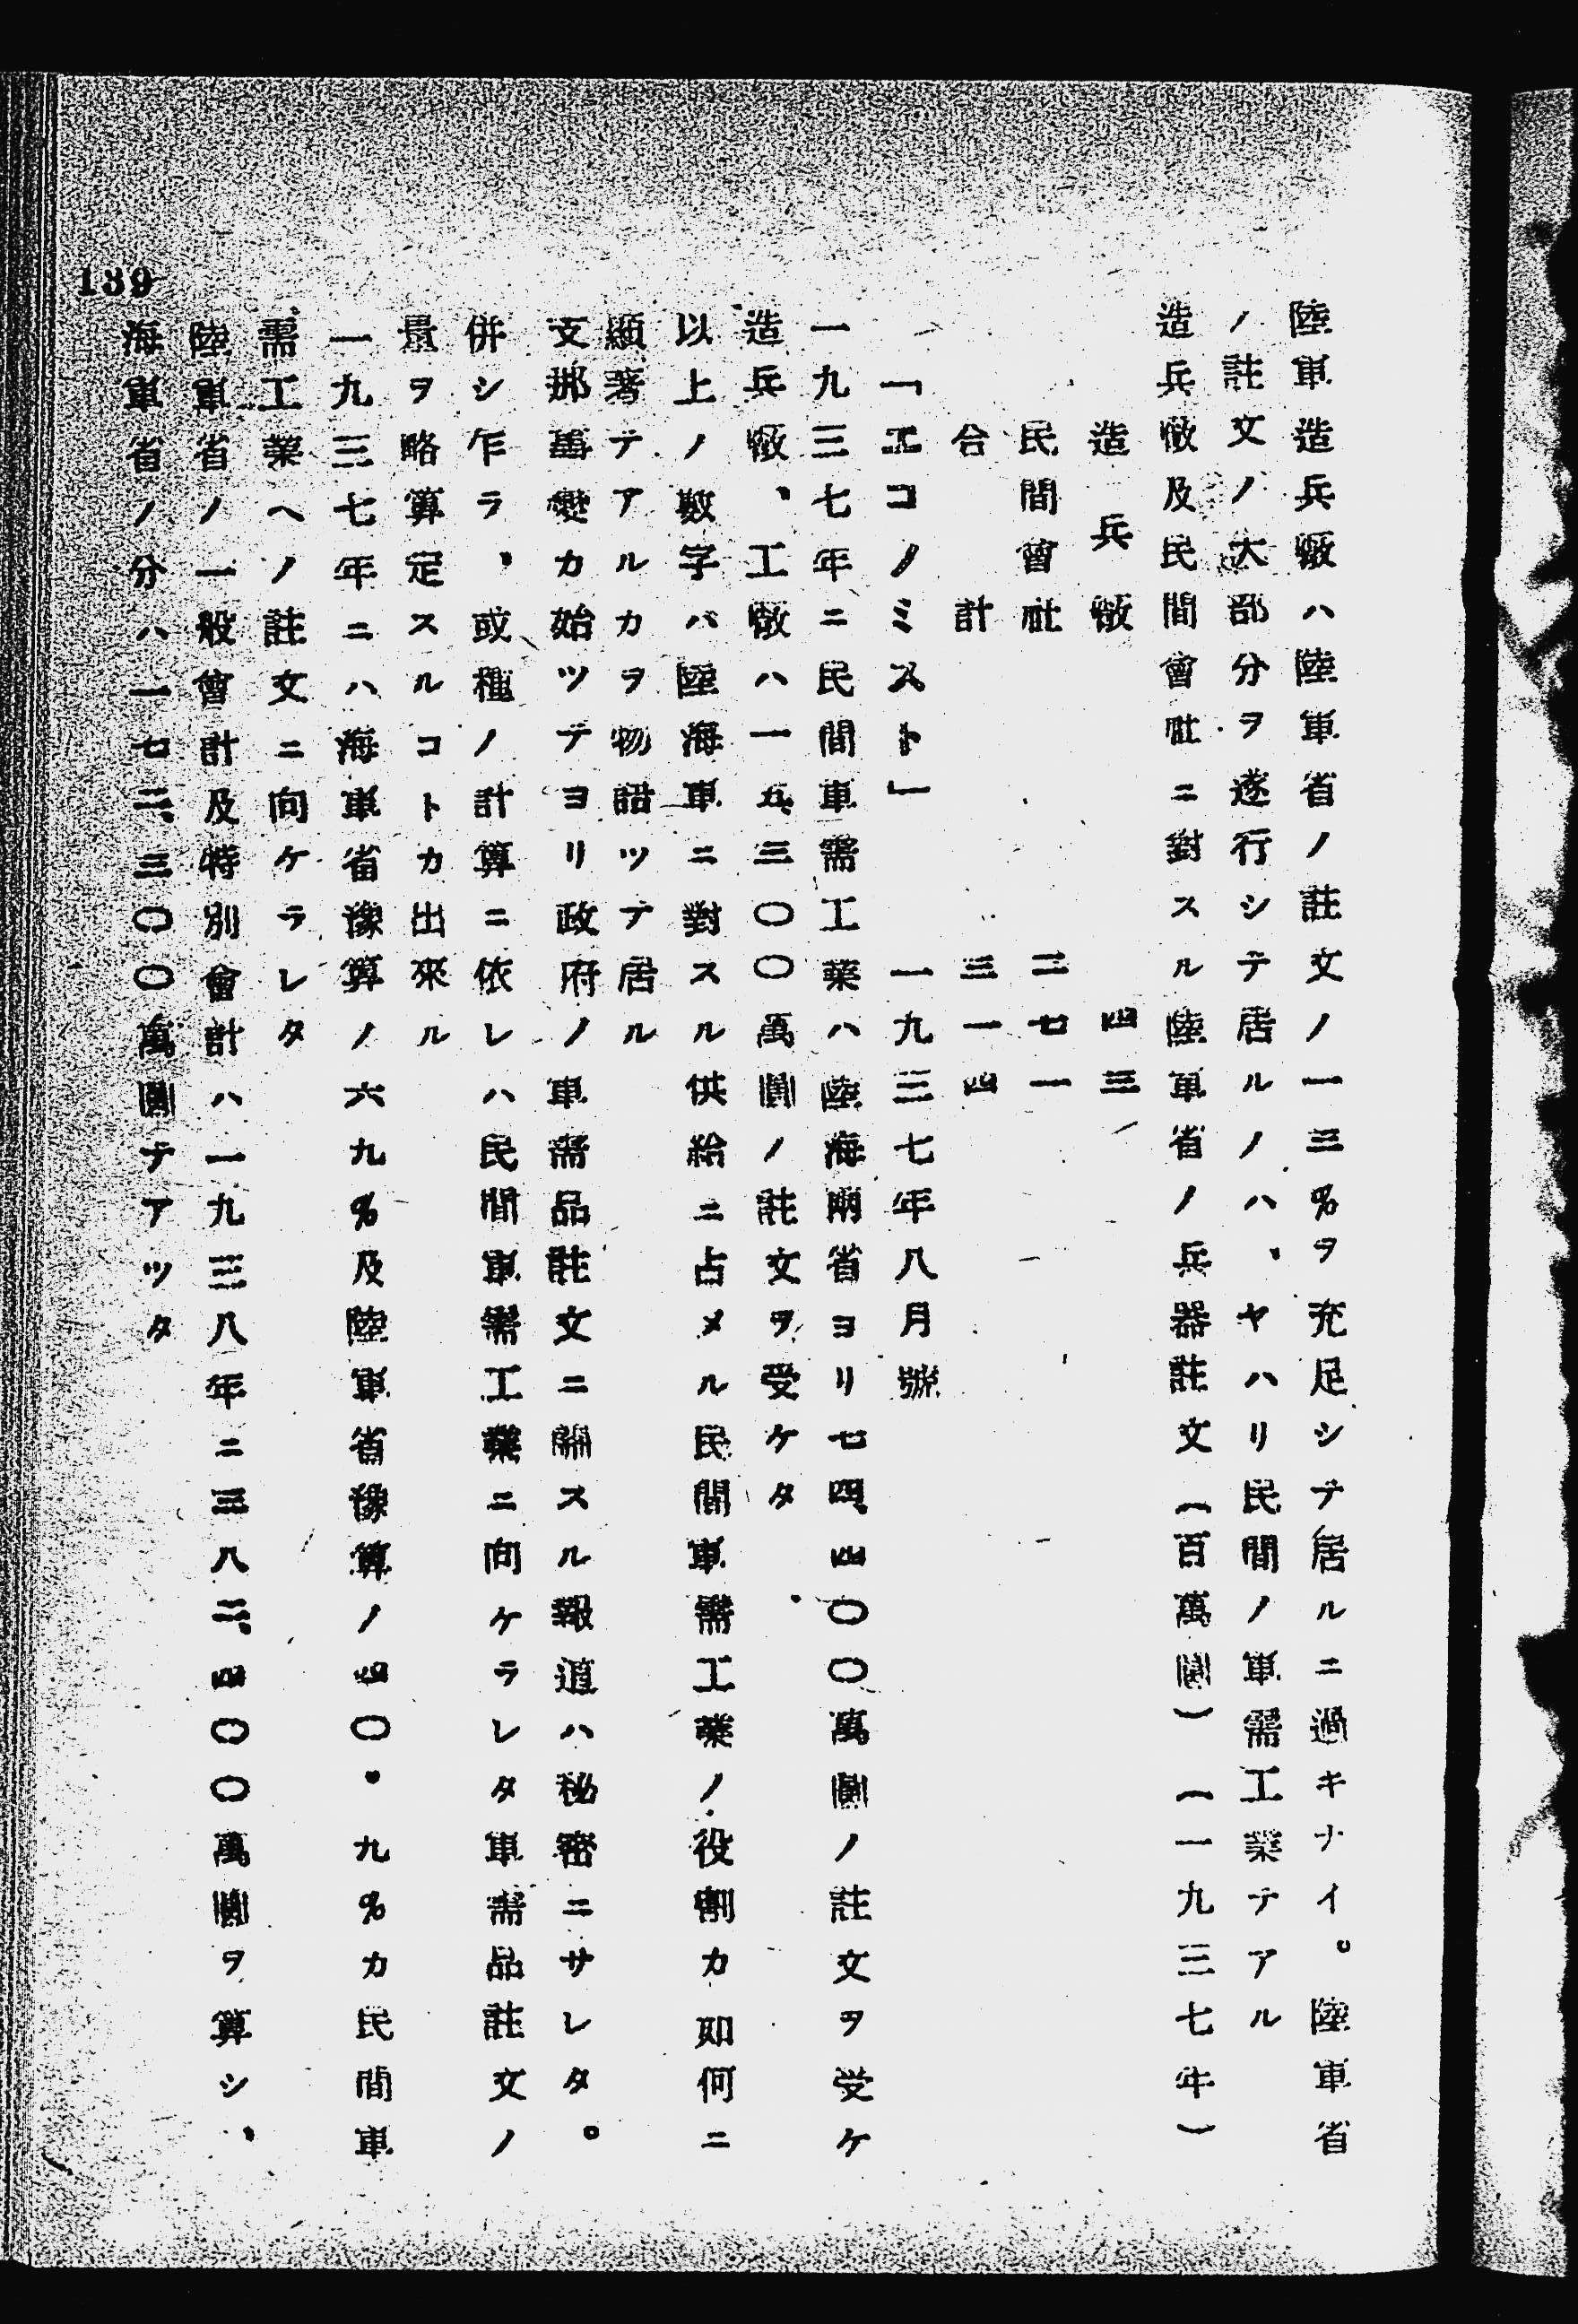 陸軍造兵廠ハ陸軍省ノ註文ノ一三%ヲ充足シテ居ルニ過キナイ。陸軍省
ノ註文ノ大部分ヲ遂行シテ居ルノハ、ヤハリ民間ノ軍需工業テアル
造兵廠及民間會社ニ對スル陸軍省ノ兵器註文(百萬圓)(一九三七年)
造兵廠 四三
民間會社 二七一
合計 三一四
「エコノミスト」 一九三七年八月號
一九三七年ニ民間軍需工業ハ陸海兩省ヨリ七四、四〇〇萬圓ノ註文ヲ受ケ
造兵廠、工廠ハ一五、三〇〇萬圓ノ註文ヲ受ケタ
以上ノ數字バ陸海軍ニ對スル供給ニ占メル民間軍需工業ノ役割カ如何ニ
顯著テアルカヲ物語ツテ居ル
支那事變カ始ツテヨリ政府ノ軍需品註文ニ關スル報道ハ秘密ニサレタ。
併シ乍ラ、或種ノ計算ニ依レハ民間軍需工業ニ向ケラレタ軍需品註文ノ
量ヲ略算定スルコトカ出來ル
一九三七年ニハ海軍省豫算ノ六九%及陸軍省豫算ノ四〇・九%カ民間軍
需工業ヘノ註文ニ向ケラレタ
陸軍省ノ一般會計及特別會計ハ一九三八年ニ三八二、四〇〇萬圓ヲ算シ、
海軍省ノ分ハ一七二、三〇〇萬圓テアツタ
139